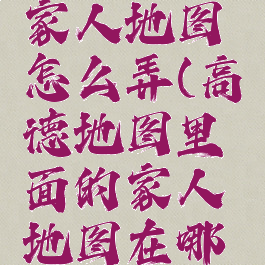 家人地图
怎么弄(高
德地图里
面的家人
地图在哪